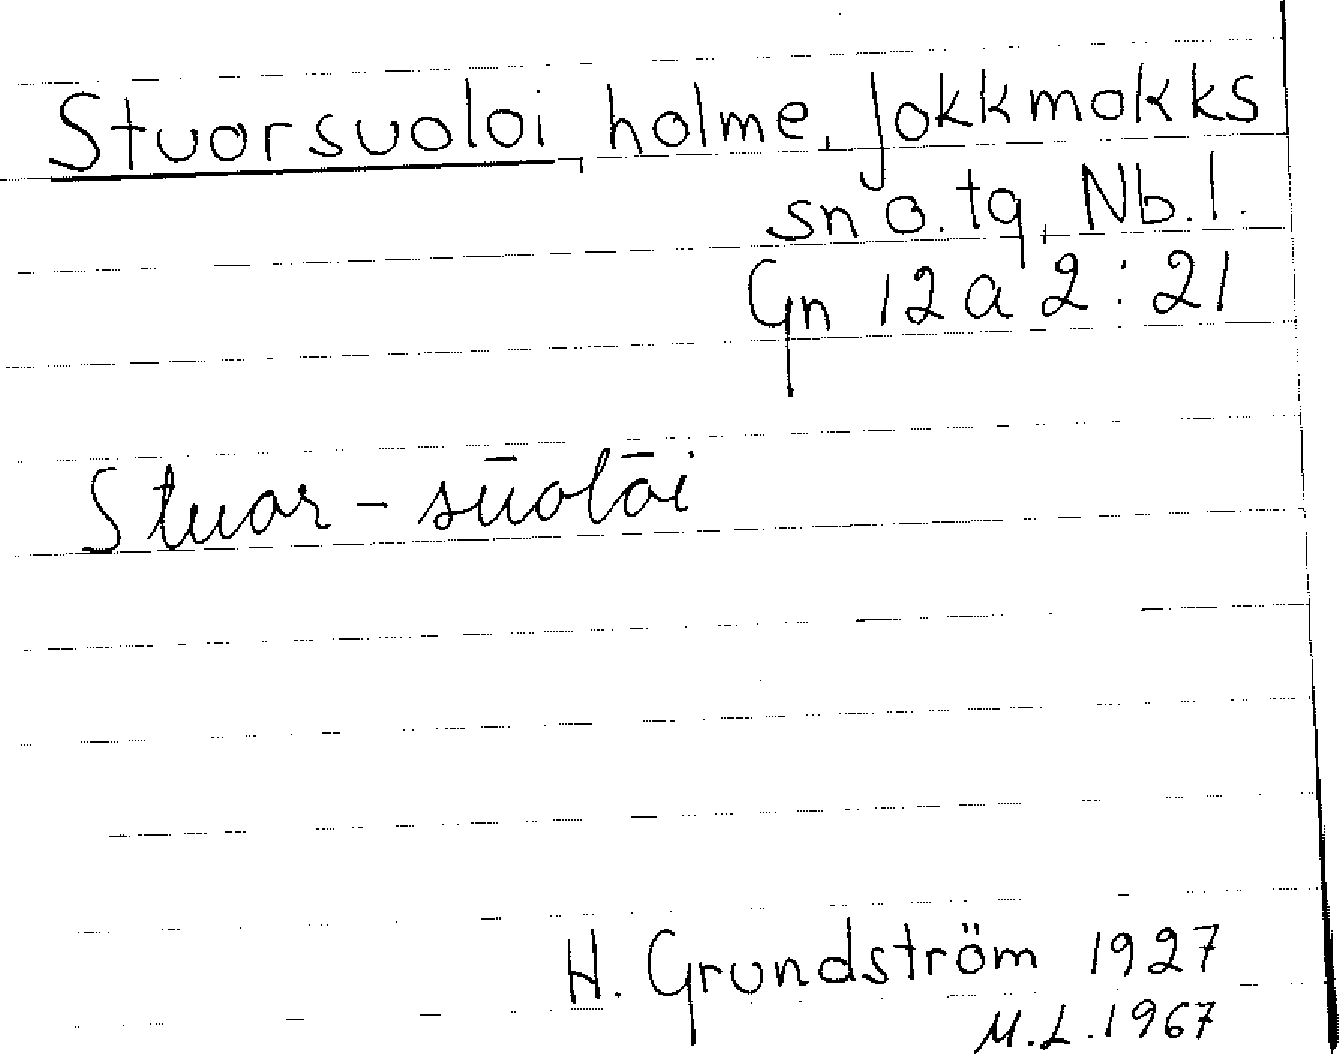 Stuorsuoloi, holme, Jokkmokks
sn o. tg, Nb. l.
Gn 12 a 2 : 21
Stuar - sūolāi
H. Grundström 1927
M.L. 1967